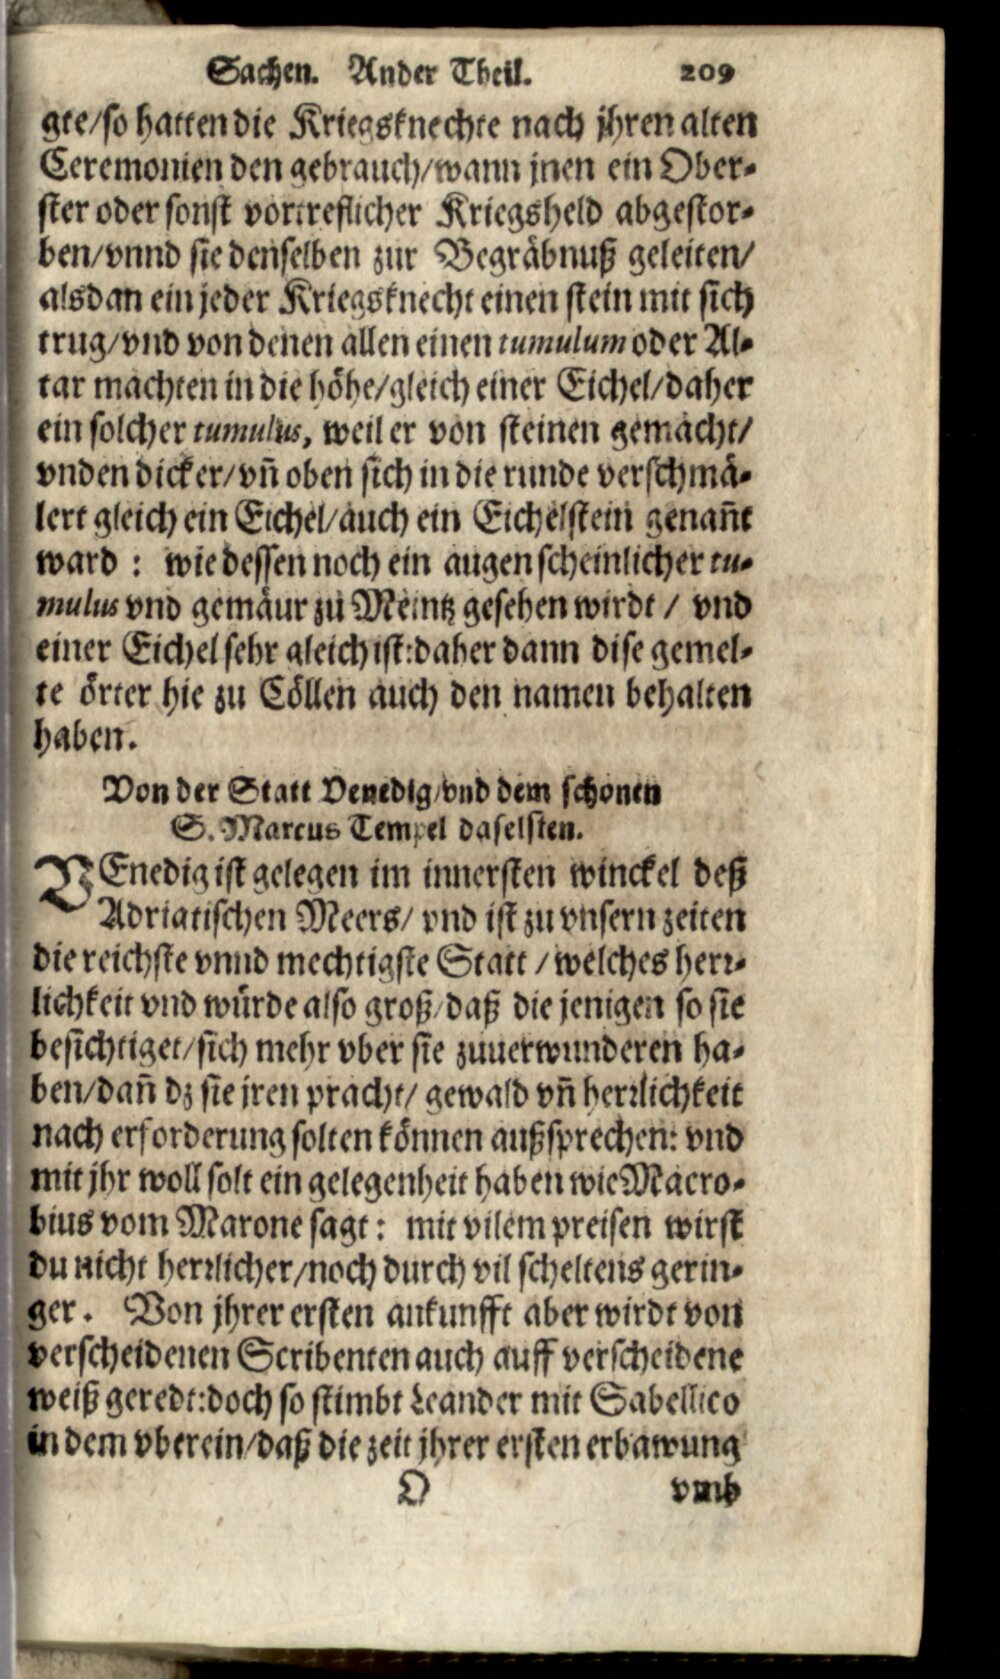 Sachen. Ander Theil. 209
gte/so hatten die Kriegsknechte nach jhren alten
Ceremonien den gebrauch/wann jnen ein Ober-
ster oder sonst vortreflicher Kriegsheld abgestor-
ben/vnnd sie denselben zur Begräbnuß geleiten/
alsdan ein jeder Kriegsknecht einen stein mit sich
trug/vnd von denen allen einen tumulum oder Al-
tar machten in die höhe/gleich einer Eichel/daher
ein solcher tumulus, weil er von steinen gemacht/
vnden dicker/vñ oben sich in die runde verschmä-
lert gleich ein Eichel/auch ein Eichelstein genañt
ward : wie dessen noch ein augenscheinlicher tu-
mulus vnd gemäur zu Meintz gesehen wirdt / vnd
einer Eichel sehr gleich ist:daher dann dise gemel-
te örter hie zu Cöllen auch den namen behalten
haben.
Von der Statt Venedig/vnd dem schonen
S. Marcus Tempel daselsten.
VEnedig ist gelegen im innersten winckel deß
Adriatischen Meers/ vnd ist zu vnsern zeiten
die reichste vnnd mechtigste Statt / welches herr-
lichkeit vnd würde also groß/daß die jenigen so sie
besichtiget/sich mehr vber sie zuuerwunderen ha-
ben/dañ dz sie jren pracht/ gewald vñ herrlichkeit
nach erforderung solten können außsprechen: vnd
mit jhr woll solt ein gelegenheit haben wie Macro-
bius vom Marone sagt : mit vilem preisen wirst
du nicht herrlicher/noch durch vil scheltens gerin-
ger. Von jhrer ersten ankunfft aber wirdt von
verscheidenen Scribenten auch auff verscheidene
weiß geredt:doch so stimbt Leander mit Sabellico
in dem vberein/daß die zeit jhrer ersten erbawung
O vmb